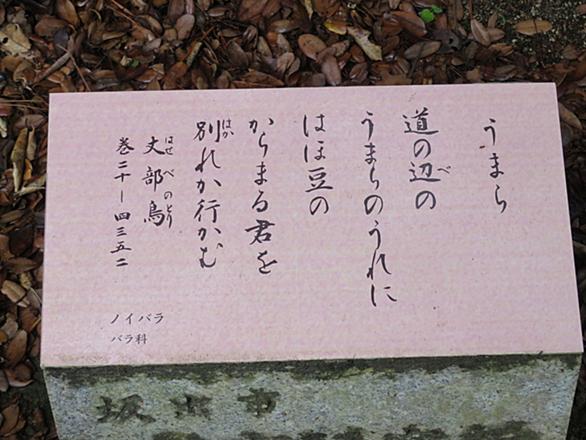 うまら
道の辺の
うまらのうれに
はほ豆の
からまる君を
別れか行かむ
丈部鳥
巻二十ー四三五二
ノイバラ
バラ科